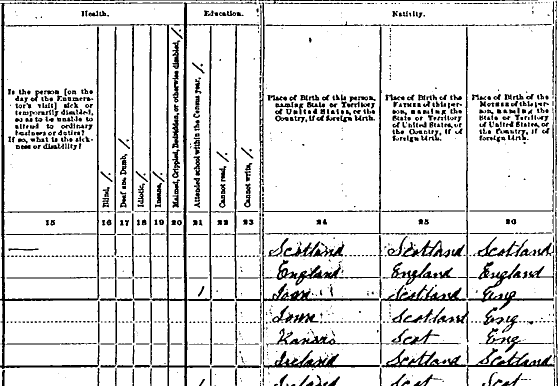 Health. Education. Nativity.
Is the person [on the
day of the Enumera-
tor's visit] sick or
temporarily disabled,
so as to be unable to
attend to ordinary
business or duties?
If so, what is the sick-
ness or disability?
Blind, /.
Deaf and Dumb, /.
Idiotic, /.
Insane, /.
Maimed, Crippled, Bedridden, or otherwise disabled, /.
Attended school within the Census year, /.
Cannot read, /.
Cannot write, /.
Place of Birth of this person,
naming State or Territory
of United States, or the
Country, if of foreign birth.
Place of Birth of the
FATHER of this per-
son, naming the
State or Territory
of United States, or
the Country, if of
foreign birth.
Place of Birth of the
MOTHER of this per-
son, naming the
State or Territory
of United States, or
the Country, if of
foreign birth.
15 16 17 18 19 20 21 22 23 24 25 26
Scotland Scotland Scotland
England England England
/ Iowa Scotland Eng
Iowa Scotland Eng.
Kansas Scot Eng
Ireland Scotland Scotland
/ Ireland Scot Scot